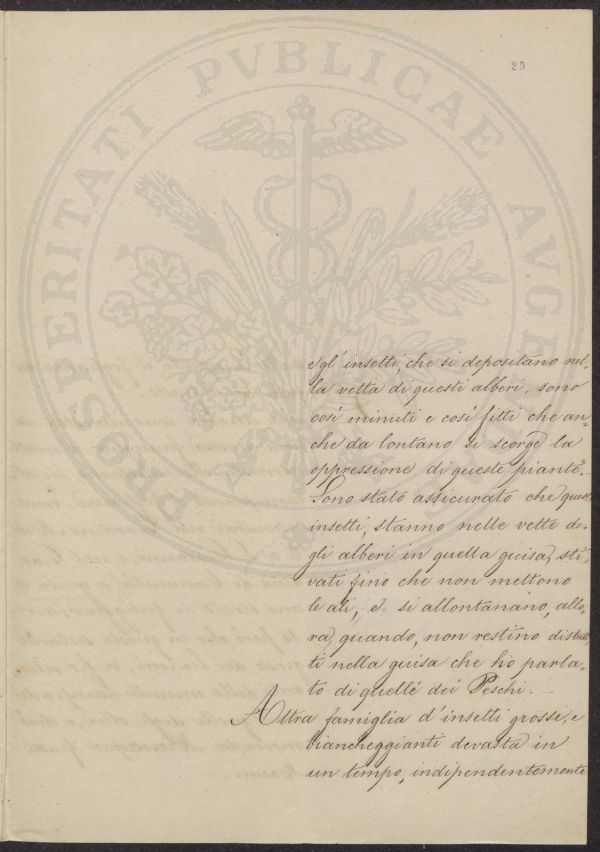 PROSPERITATI PVBLICAE AVGE
29
e gl' insetti, che si depositano nel,
la vetta di questi alberi, sono
così minuti e così fitti che an-
che da lontano si scorge la
oppressione di queste piante. -
Sono stato assicurato che questi
insetti, stanno nelle vette de-
gli alberi in quella guisa, sti-
vati fino che non mettono
le ali, e si allontanano, allo-
ra, quando, non restino distrut-
ti nella guisa che ho parla-
to di quelle dei Peschi. -
Altra famiglia d' insetti grossi, e
biancheggianti devasta in
un tempo, indipendentemente